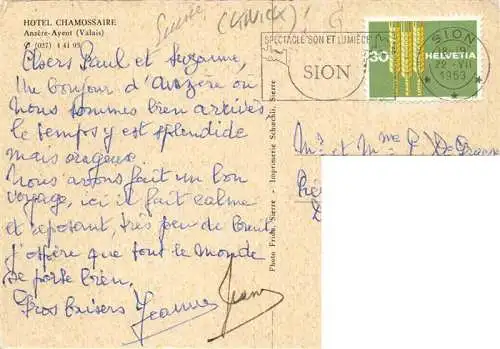 HOTEL CHAMOSSAIRE
Anzère-Ayent (Valais)
(027) 4 41 95
Suisse
Chers Paul et Suzanne,
Un bonjour d'Anzère où
Nous sommes bien arrivés
le temps y est splendide
mais orageux.
Nous avons fait un bon
voyage, ici il fait calme
et reposant, très peu de bruit
J'espère que tout le monde
se porte bien.
Gros baisers Jeanne
Jean
SPECTACLE SON ET LUMIÈRE
SION
30
HELVETIA
SION
18-19
22-VII
1963
Mr et Mme
Photo Frido, Sierre - Imprimerie Schœchli, Sierre